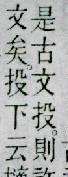 是古文投。則
文矣。投下云